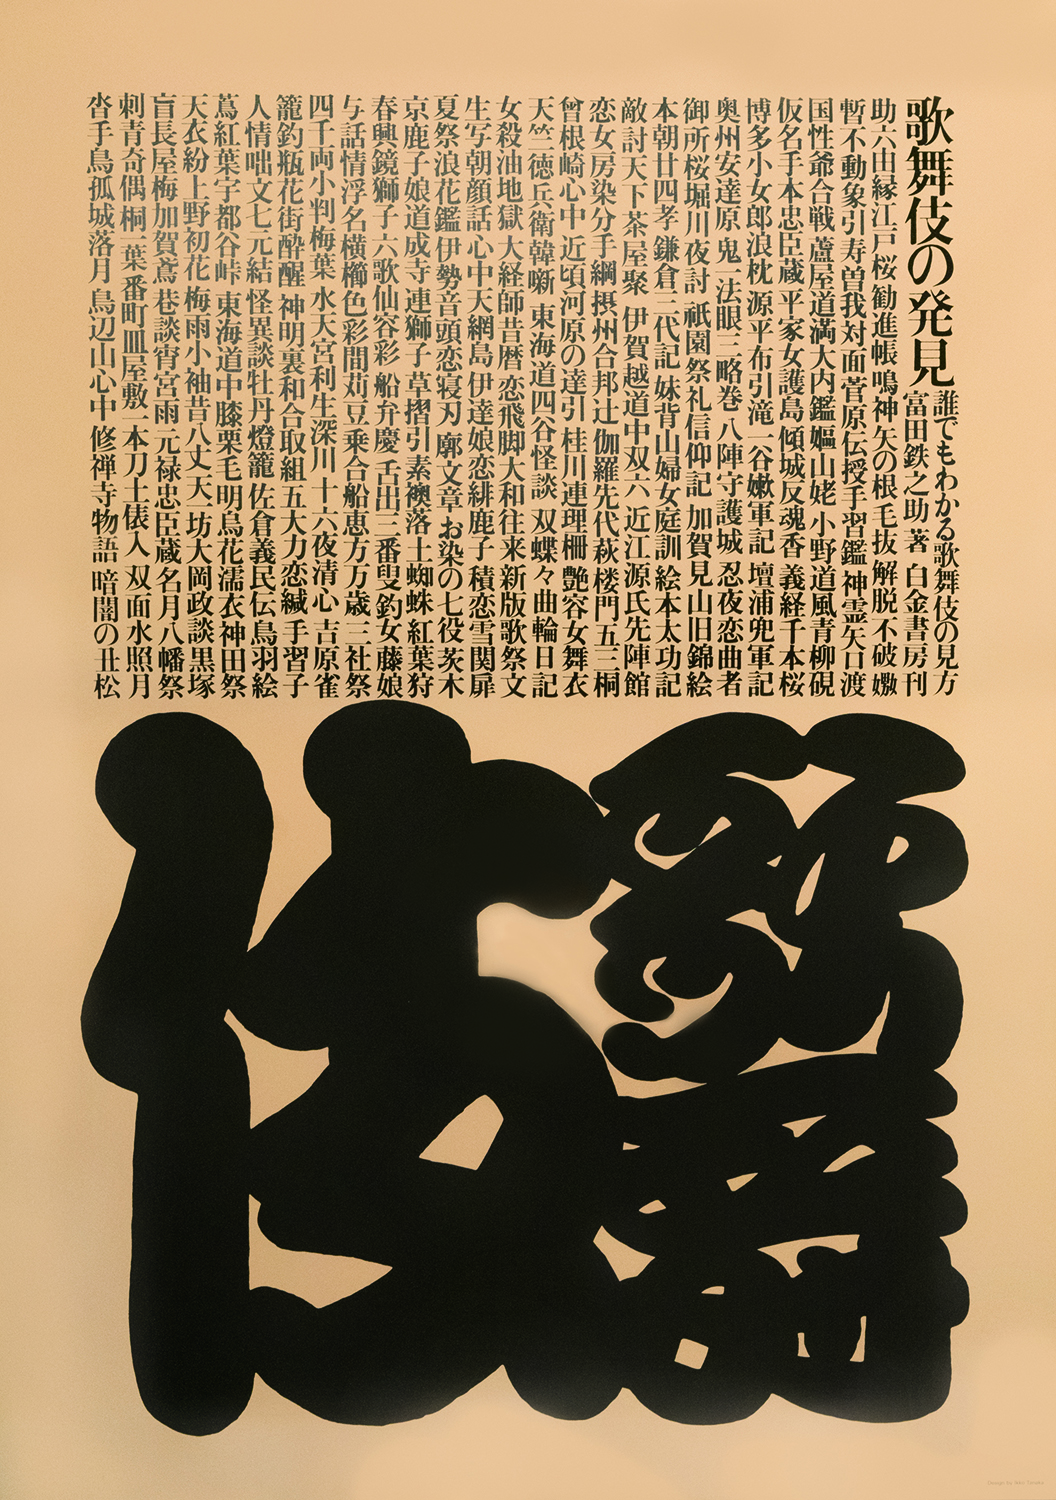 歌舞伎の発見
誰でもわかる歌舞伎の見方
富田鉄之助 著 白金書房刊
助六由縁江戸桜 勧進帳 鳴神 矢の根 毛抜 解脱 不破 嫐
暫 不動 象引 寿曽我対面 菅原伝授手習鑑 神霊矢口渡
国性爺合戦 蘆屋道満大内鑑 嫗山姥 小野道風青柳硯
仮名手本忠臣蔵 平家女護島 傾城反魂香 義経千本桜
博多小女郎浪枕 源平布引滝 一谷嫩軍記 壇浦兜軍記
奥州安達原 鬼一法眼三略巻 八陣守護城 忍夜恋曲者
御所桜堀川夜討 祇園祭礼信仰記 加賀見山旧錦絵
本朝廿四孝 鎌倉三代記 妹背山婦女庭訓 絵本太功記
敵討天下茶屋聚 伊賀越道中双六 近江源氏先陣館
恋女房染分手綱 摂州合邦辻 伽羅先代萩 楼門五三桐
曽根崎心中 近頃河原の達引 桂川連理柵 艶容女舞衣
天竺徳兵衛韓噺 東海道四谷怪談 双蝶々曲輪日記
女殺油地獄 大経師昔暦 恋飛脚大和往来 新版歌祭文
生写朝顔話 心中天網島 伊達娘恋緋鹿子 積恋雪関扉
夏祭浪花鑑 伊勢音頭恋寝刃 廓文章 お染の七役 茨木
京鹿子娘道成寺 連獅子 草摺引 素襖落 土蜘蛛 紅葉狩
春興鏡獅子 六歌仙容彩 船弁慶 舌出三番叟 釣女 藤娘
与話情浮名横櫛 色彩間苅豆 乗合船恵方万歳 三社祭
四千両小判梅葉 水天宮利生深川 十六夜清心 吉原雀
籠釣瓶花街酔醒 神明裏和合取組 五大力恋緘 手習子
人情咄文七元結 怪異談牡丹燈籠 佐倉義民伝 鳥羽絵
蔦紅葉宇都谷峠 東海道中膝栗毛 明烏花濡衣 神田祭
天衣紛上野初花 梅雨小袖昔八丈 天一坊大岡政談 黒塚
盲長屋梅加賀鳶 巷談宵宮雨 元禄忠臣蔵 名月八幡祭
刺青奇偶 桐一葉 番町皿屋敷 一本刀土俵入 双面水照月
沓手鳥孤城落月 鳥辺山心中 修禅寺物語 暗闇の丑松
歌舞伎